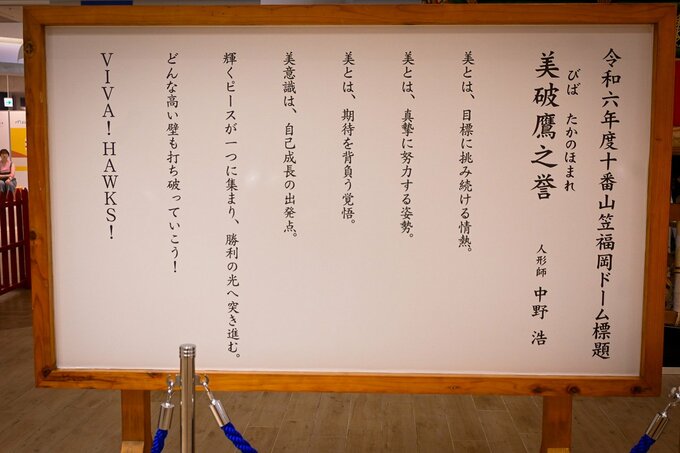 令和六年度十番山笠福岡ドーム標題
びば たかのほまれ
美破鷹之誉
人形師 中野 浩
美とは、目標に挑み続ける情熱。
美とは、真摯に努力する姿勢。
美とは、期待を背負う覚悟。
美意識は、自己成長の出発点。
輝くピースが一つに集まり、勝利の光へ突き進む。
どんな高い壁も打ち破っていこう!
VIVA! HAWKS!